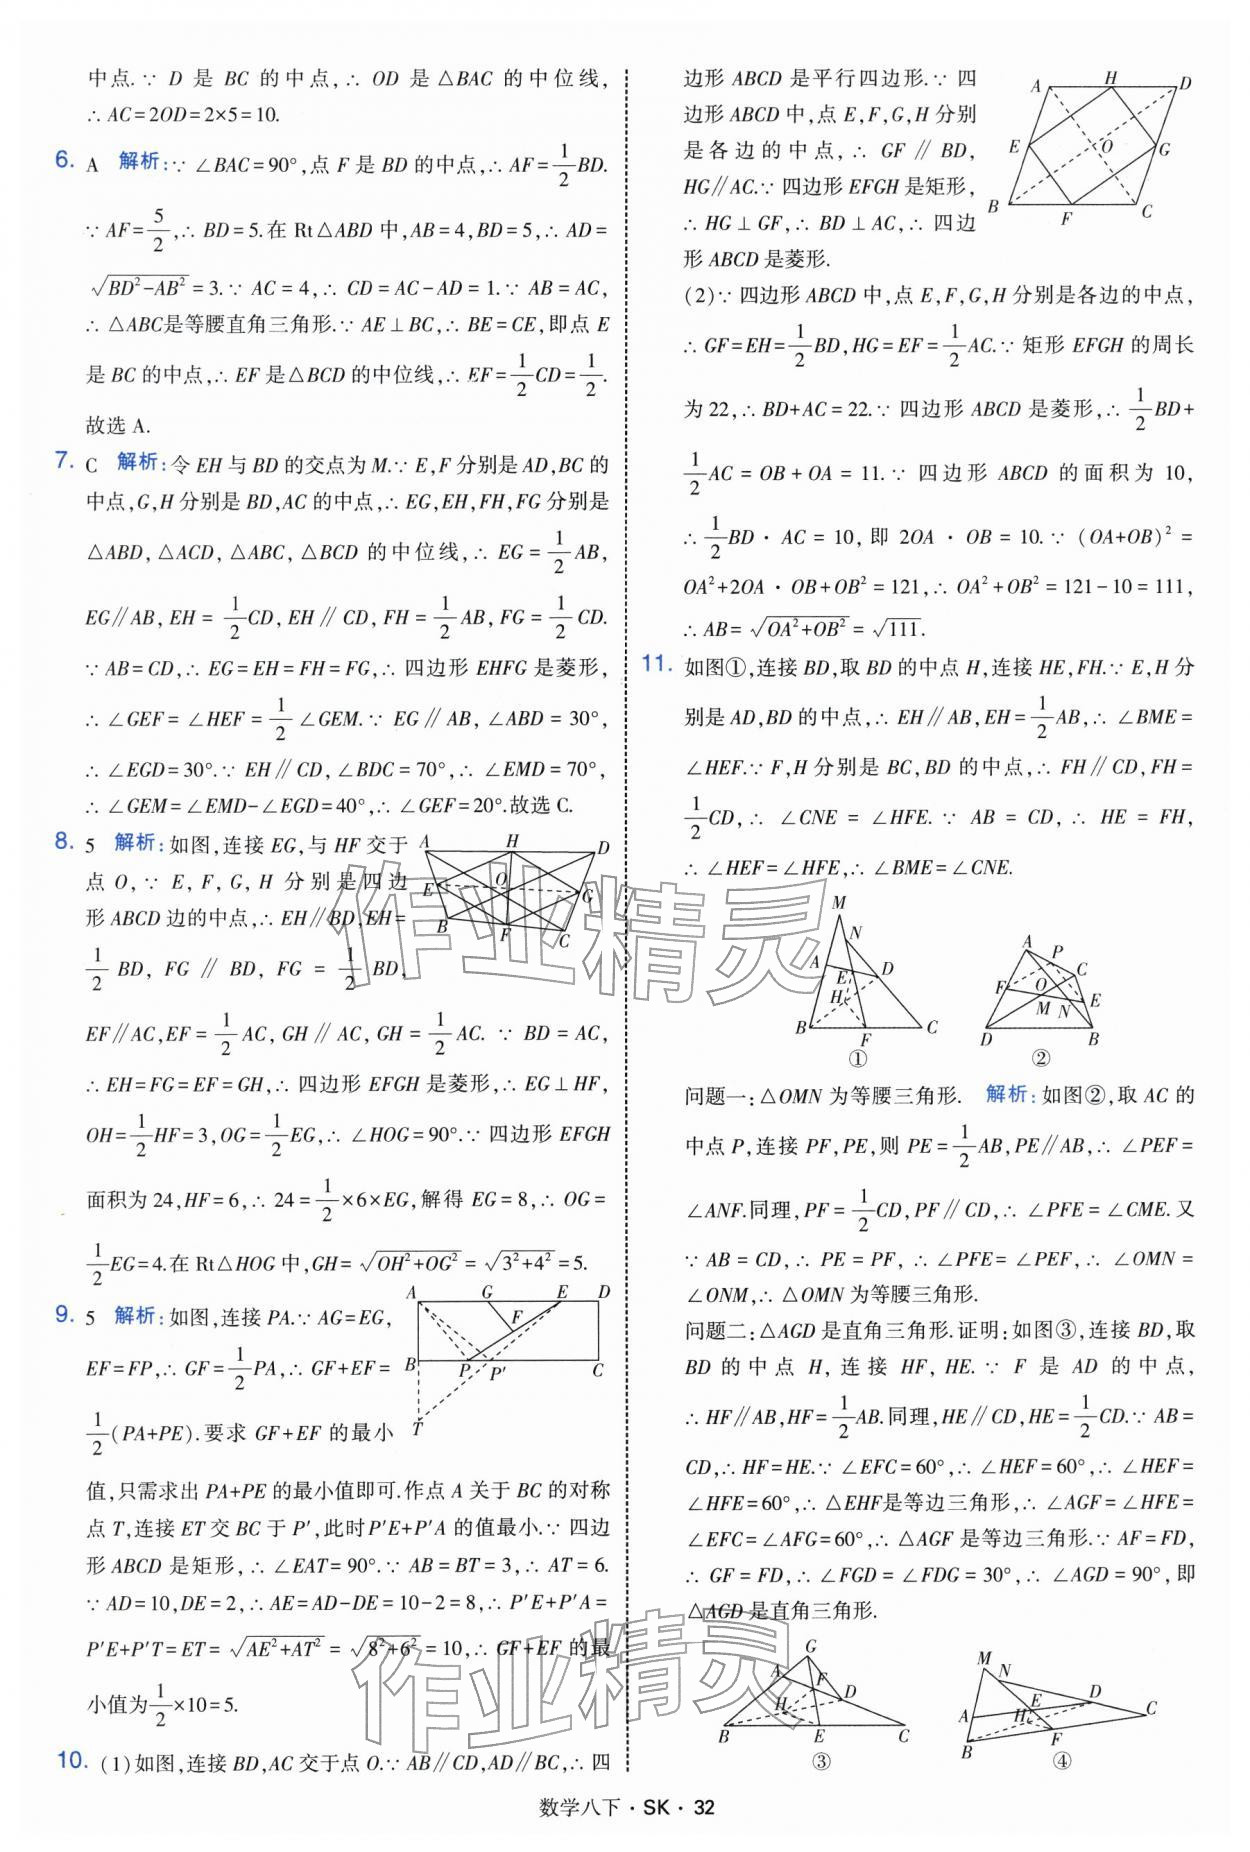 中点.∵ D 是 BC 的中点,∴ OD 是 △BAC 的中位线,
∴ AC=2OD=2×5=10.
6. A 解析:∵ ∠BAC=90°,点 F 是 BD 的中点,∴ AF=1/2BD.
∵ AF=5/2,∴ BD=5.在 Rt△ABD 中,AB=4,BD=5,∴ AD=
√(BD²-AB²)=3.∵ AC=4,∴ CD=AC-AD=1.∵ AB=AC,
∴ △ABC是等腰直角三角形.∵ AE⊥BC,∴ BE=CE,即点 E
是 BC 的中点,∴ EF 是△BCD 的中位线,∴ EF=1/2CD=1/2.
故选 A.
7. C 解析:令 EH 与 BD 的交点为 M.∵ E,F 分别是 AD,BC 的
中点,G,H 分别是 BD,AC 的中点,∴ EG,EH,FH,FG 分别是
△ABD,△ACD,△ABC,△BCD 的中位线,∴ EG=1/2AB,
EG∥AB,EH=1/2CD,EH∥CD,FH=1/2AB,FG=1/2CD.
∵ AB=CD,∴ EG=EH=FH=FG,∴ 四边形 EHFG 是菱形,
∴ ∠GEF=∠HEF=1/2∠GEM.∵ EG∥AB,∠ABD=30°,
∴ ∠EGD=30°.∵ EH∥CD,∠BDC=70°,∴ ∠EMD=70°,
∴ ∠GEM=∠EMD-∠EGD=40°,∴ ∠GEF=20°.故选 C.
8. 5 解析:如图,连接 EG,与 HF 交于
点 O,∵ E,F,G,H 分别是四边
形 ABCD 边的中点,∴ EH∥BD,EH=
1/2BD,FG∥BD,FG=1/2BD,
EF∥AC,EF=1/2AC,GH∥AC,GH=1/2AC.∵ BD=AC,
∴ EH=FG=EF=GH,∴ 四边形 EFGH 是菱形,∴ EG⊥HF,
OH=1/2HF=3,OG=1/2EG,∴ ∠HOG=90°.∵ 四边形 EFGH
面积为 24,HF=6,∴ 24=1/2×6×EG,解得 EG=8,∴ OG=
1/2EG=4.在 Rt△HOG 中,GH=√(OH²+OG²)=√(3²+4²)=5.
A H D
E O G
B F C
9. 5 解析:如图,连接 PA.∵ AG=EG,
EF=FP,∴ GF=1/2PA,∴ GF+EF=
1/2(PA+PE).要求 GF+EF 的最小
值,只需求出 PA+PE 的最小值即可.作点 A 关于 BC 的对称
点 T,连接 ET 交 BC 于 P′,此时P′E+P′A 的值最小.∵ 四边
形 ABCD 是矩形,∴ ∠EAT=90°.∵ AB=BT=3,∴ AT=6.
∵ AD=10,DE=2,∴ AE=AD-DE=10-2=8,∴ P′E+P′A=
P′E+P′T=ET=√(AE²+AT²)=√(8²+6²)=10,∴ GF+EF 的最
小值为1/2×10=5.
A G E D
F
B P P′ C
T
10. (1)如图,连接 BD,AC 交于点 O.∵ AB∥CD,AD∥BC,∴ 四
边形 ABCD 是平行四边形.∵ 四
边形 ABCD 中,点 E,F,G,H 分别
是各边的中点,∴ GF∥BD,
HG∥AC.∵ 四边形 EFGH 是矩形,
∴ HG⊥GF,∴ BD⊥AC,∴ 四边
形 ABCD 是菱形.
A H D
E O G
B F C
(2)∵ 四边形 ABCD 中,点 E,F,G,H 分别是各边的中点,
∴ GF=EH=1/2BD,HG=EF=1/2AC.∵ 矩形 EFGH 的周长
为 22,∴ BD+AC=22.∵ 四边形 ABCD 是菱形,∴ 1/2BD+
1/2AC=OB+OA=11.∵ 四边形 ABCD 的面积为 10,
∴ 1/2BD·AC=10,即 2OA·OB=10.∵ (OA+OB)²=
OA²+2OA·OB+OB²=121,∴ OA²+OB²=121-10=111,
∴ AB=√(OA²+OB²)=√111.
11. 如图①,连接 BD,取 BD 的中点 H,连接 HE,FH.∵ E,H 分
别是 AD,BD 的中点,∴ EH∥AB,EH=1/2AB,∴ ∠BME=
∠HEF.∵ F,H 分别是 BC,BD 的中点,∴ FH∥CD,FH=
1/2CD,∴ ∠CNE=∠HFE.∵ AB=CD,∴ HE=FH,
∴ ∠HEF=∠HFE,∴ ∠BME=∠CNE.
M N A E D H B F C ①
A P C F O E M N D B ②
问题一:△OMN 为等腰三角形. 解析:如图②,取 AC 的
中点 P,连接 PF,PE,则 PE=1/2AB,PE∥AB,∴ ∠PEF=
∠ANF.同理,PF=1/2CD,PF∥CD,∴ ∠PFE=∠CME.又
∵ AB=CD,∴ PE=PF,∴ ∠PFE=∠PEF,∴ ∠OMN=
∠ONM,∴ △OMN 为等腰三角形.
问题二:△AGD 是直角三角形.证明:如图③,连接 BD,取
BD 的中点 H,连接 HF,HE.∵ F 是 AD 的中点,
∴ HF∥AB,HF=1/2AB.同理,HE∥CD,HE=1/2CD.∵ AB=
CD,∴ HF=HE.∵ ∠EFC=60°,∴ ∠HEF=60°,∴ ∠HEF=
∠HFE=60°,∴ △EHF是等边三角形,∴ ∠AGF=∠HFE=
∠EFC=∠AFG=60°,∴ △AGF 是等边三角形.∵ AF=FD,
∴ GF=FD,∴ ∠FGD=∠FDG=30°,∴ ∠AGD=90°,即
△AGD 是直角三角形.
G A F D H B E C ③
M N E D A H C B F ④
作业精灵
作业精灵
数学八下·SK·32